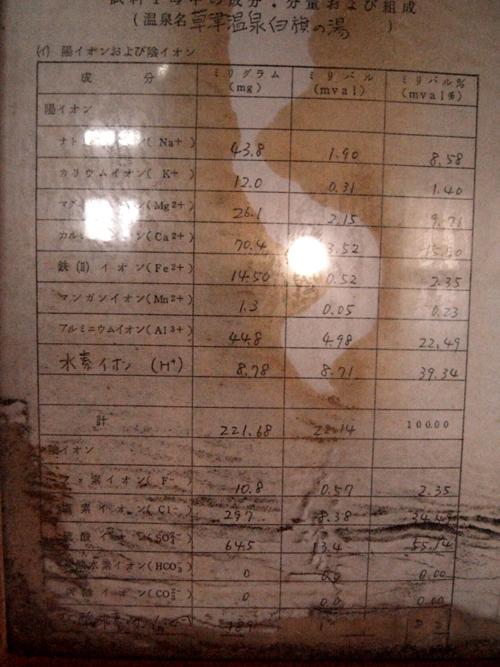 試料1kg中の成分・分量および組成
(温泉名 草津温泉白旗の湯 )
(イ) 陽イオンおよび陰イオン
成 分 ミリグラム (mg) ミリバル (mval) ミリバル% (mval%)
陽イオン
ナト (Na+) 43.8 1.90 8.58
カリウムイオン(K+) 12.0 0.31 1.40
マグ (Mg2+) 26.1 2.15 9.71
カル (Ca2+) 70.4 3.52
鉄(II)イオン(Fe2+) 14.50 0.52 2.35
マンガンイオン(Mn2+) 1.3 0.05 0.23
アルミニウムイオン(Al3+) 44.8 4.98 22.49
水素イオン (H+) 8.78 8.71 39.34
計 221.68 22.14 100.00
陰イオン
フッ素イオン(F-) 10.8 0.57 2.35
塩素イオン(Cl-) 297 8.38
硫酸イオン(SO4 2-) 645 13.4 55.14
炭酸水素イオン(HCO3-) 0 0.0 0.00
炭酸イオン(CO3 2-) 0 0.0 0.00